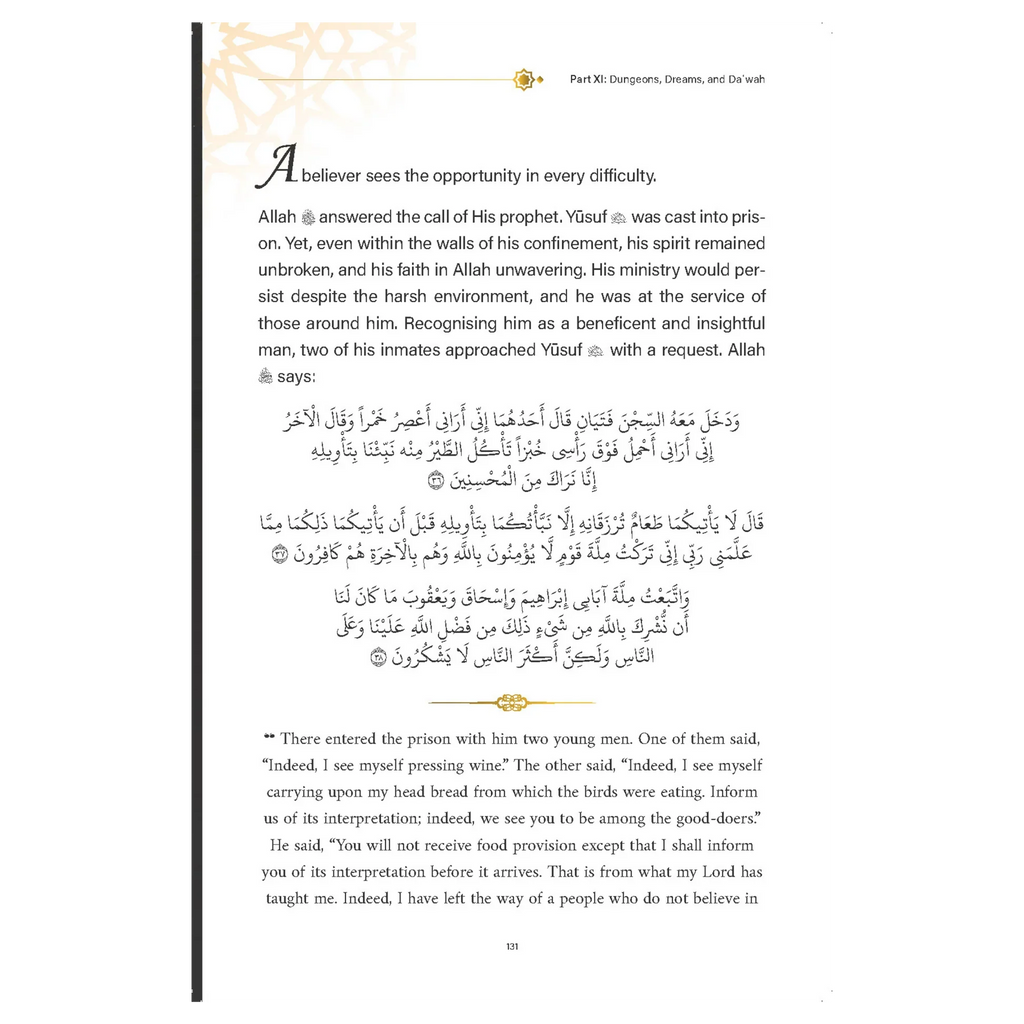 Part XI: Dungeons, Dreams, and Da'wah
A believer sees the opportunity in every difficulty.
Allah ﷻ answered the call of His prophet. Yūsuf was cast into pris-
on. Yet, even within the walls of his confinement, his spirit remained
unbroken, and his faith in Allah unwavering. His ministry would per-
sist despite the harsh environment, and he was at the service of
those around him. Recognising him as a beneficent and insightful
man, two of his inmates approached Yūsuf with a request. Allah
ﷻ says:
وَدَخَلَ مَعَهُ السِّجْنَ فَتَيَانِ قَالَ أَحَدُهُمَا إِنِّي أَرَانِي أَعْصِرُ خَمْراً وَقَالَ الْآخَرُ
إِنِّي أَرَانِي أَحْمِلُ فَوْقَ رَأْسِي خُبْزاً تَأْكُلُ الطَّيْرُ مِنْه نَبِّئْنَا بِتَأْوِيلِهِ
إِنَّا نَرَاكَ مِنَ الْمُحْسِنِينَ ٣٦
قَالَ لَا يَأْتِيكُمَا طَعَامٌ تُرْزَقَانِهِ إِلَّا نَبَّأْتُكُمَا بِتَأْوِيلِهِ قَبْلَ أَن يَأْتِيكُمَا ذَلِكُمَا مِمَّا
عَلَّمَنِي رَبِّي إِنِّي تَرَكْتُ مِلَّةَ قَوْمٍ لَّا يُؤْمِنُونَ بِاللَّهِ وَهُم بِالْآخِرَةِ هُمْ كَافِرُونَ ٣٧
وَاتَّبَعْتُ مِلَّةَ آبَايِي إِبْرَاهِيمَ وَإِسْحَاقَ وَيَعْقُوبَ مَا كَانَ لَنَا
أَن نُّشْرِكَ بِاللَّهِ مِن شَيْءٍ ذَلِكَ مِن فَضْلِ اللَّهِ عَلَيْنَا وَعَلَى
النَّاسِ وَلَكِنَّ أَكْثَرَ النَّاسِ لَا يَشْكُرُونَ ٣٨
“ There entered the prison with him two young men. One of them said,
“Indeed, I see myself pressing wine.” The other said, “Indeed, I see myself
carrying upon my head bread from which the birds were eating. Inform
us of its interpretation; indeed, we see you to be among the good-doers.”
He said, “You will not receive food provision except that I shall inform
you of its interpretation before it arrives. That is from what my Lord has
taught me. Indeed, I have left the way of a people who do not believe in
131